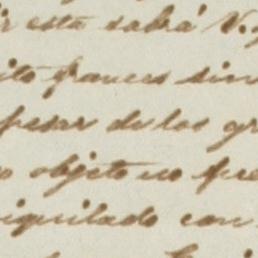 r esta sabrá V.
ito frances sin
pesar de los gr
o objeto no fue
iquilado con